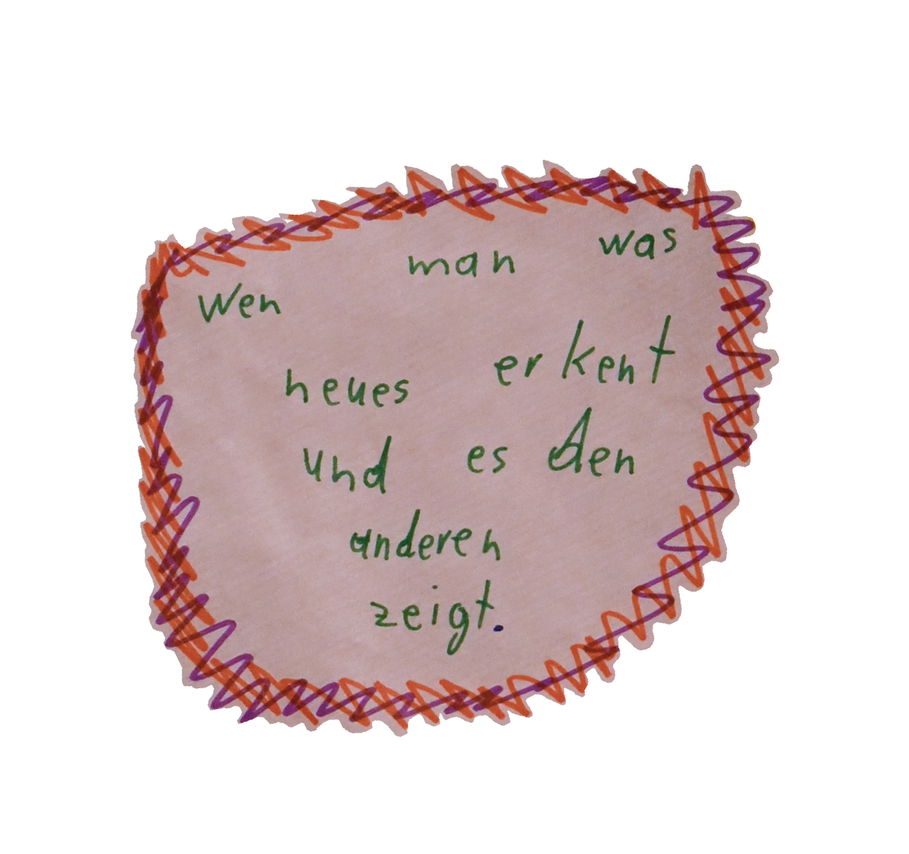 Wen man was
neues erkent
und es den
anderen
zeigt.